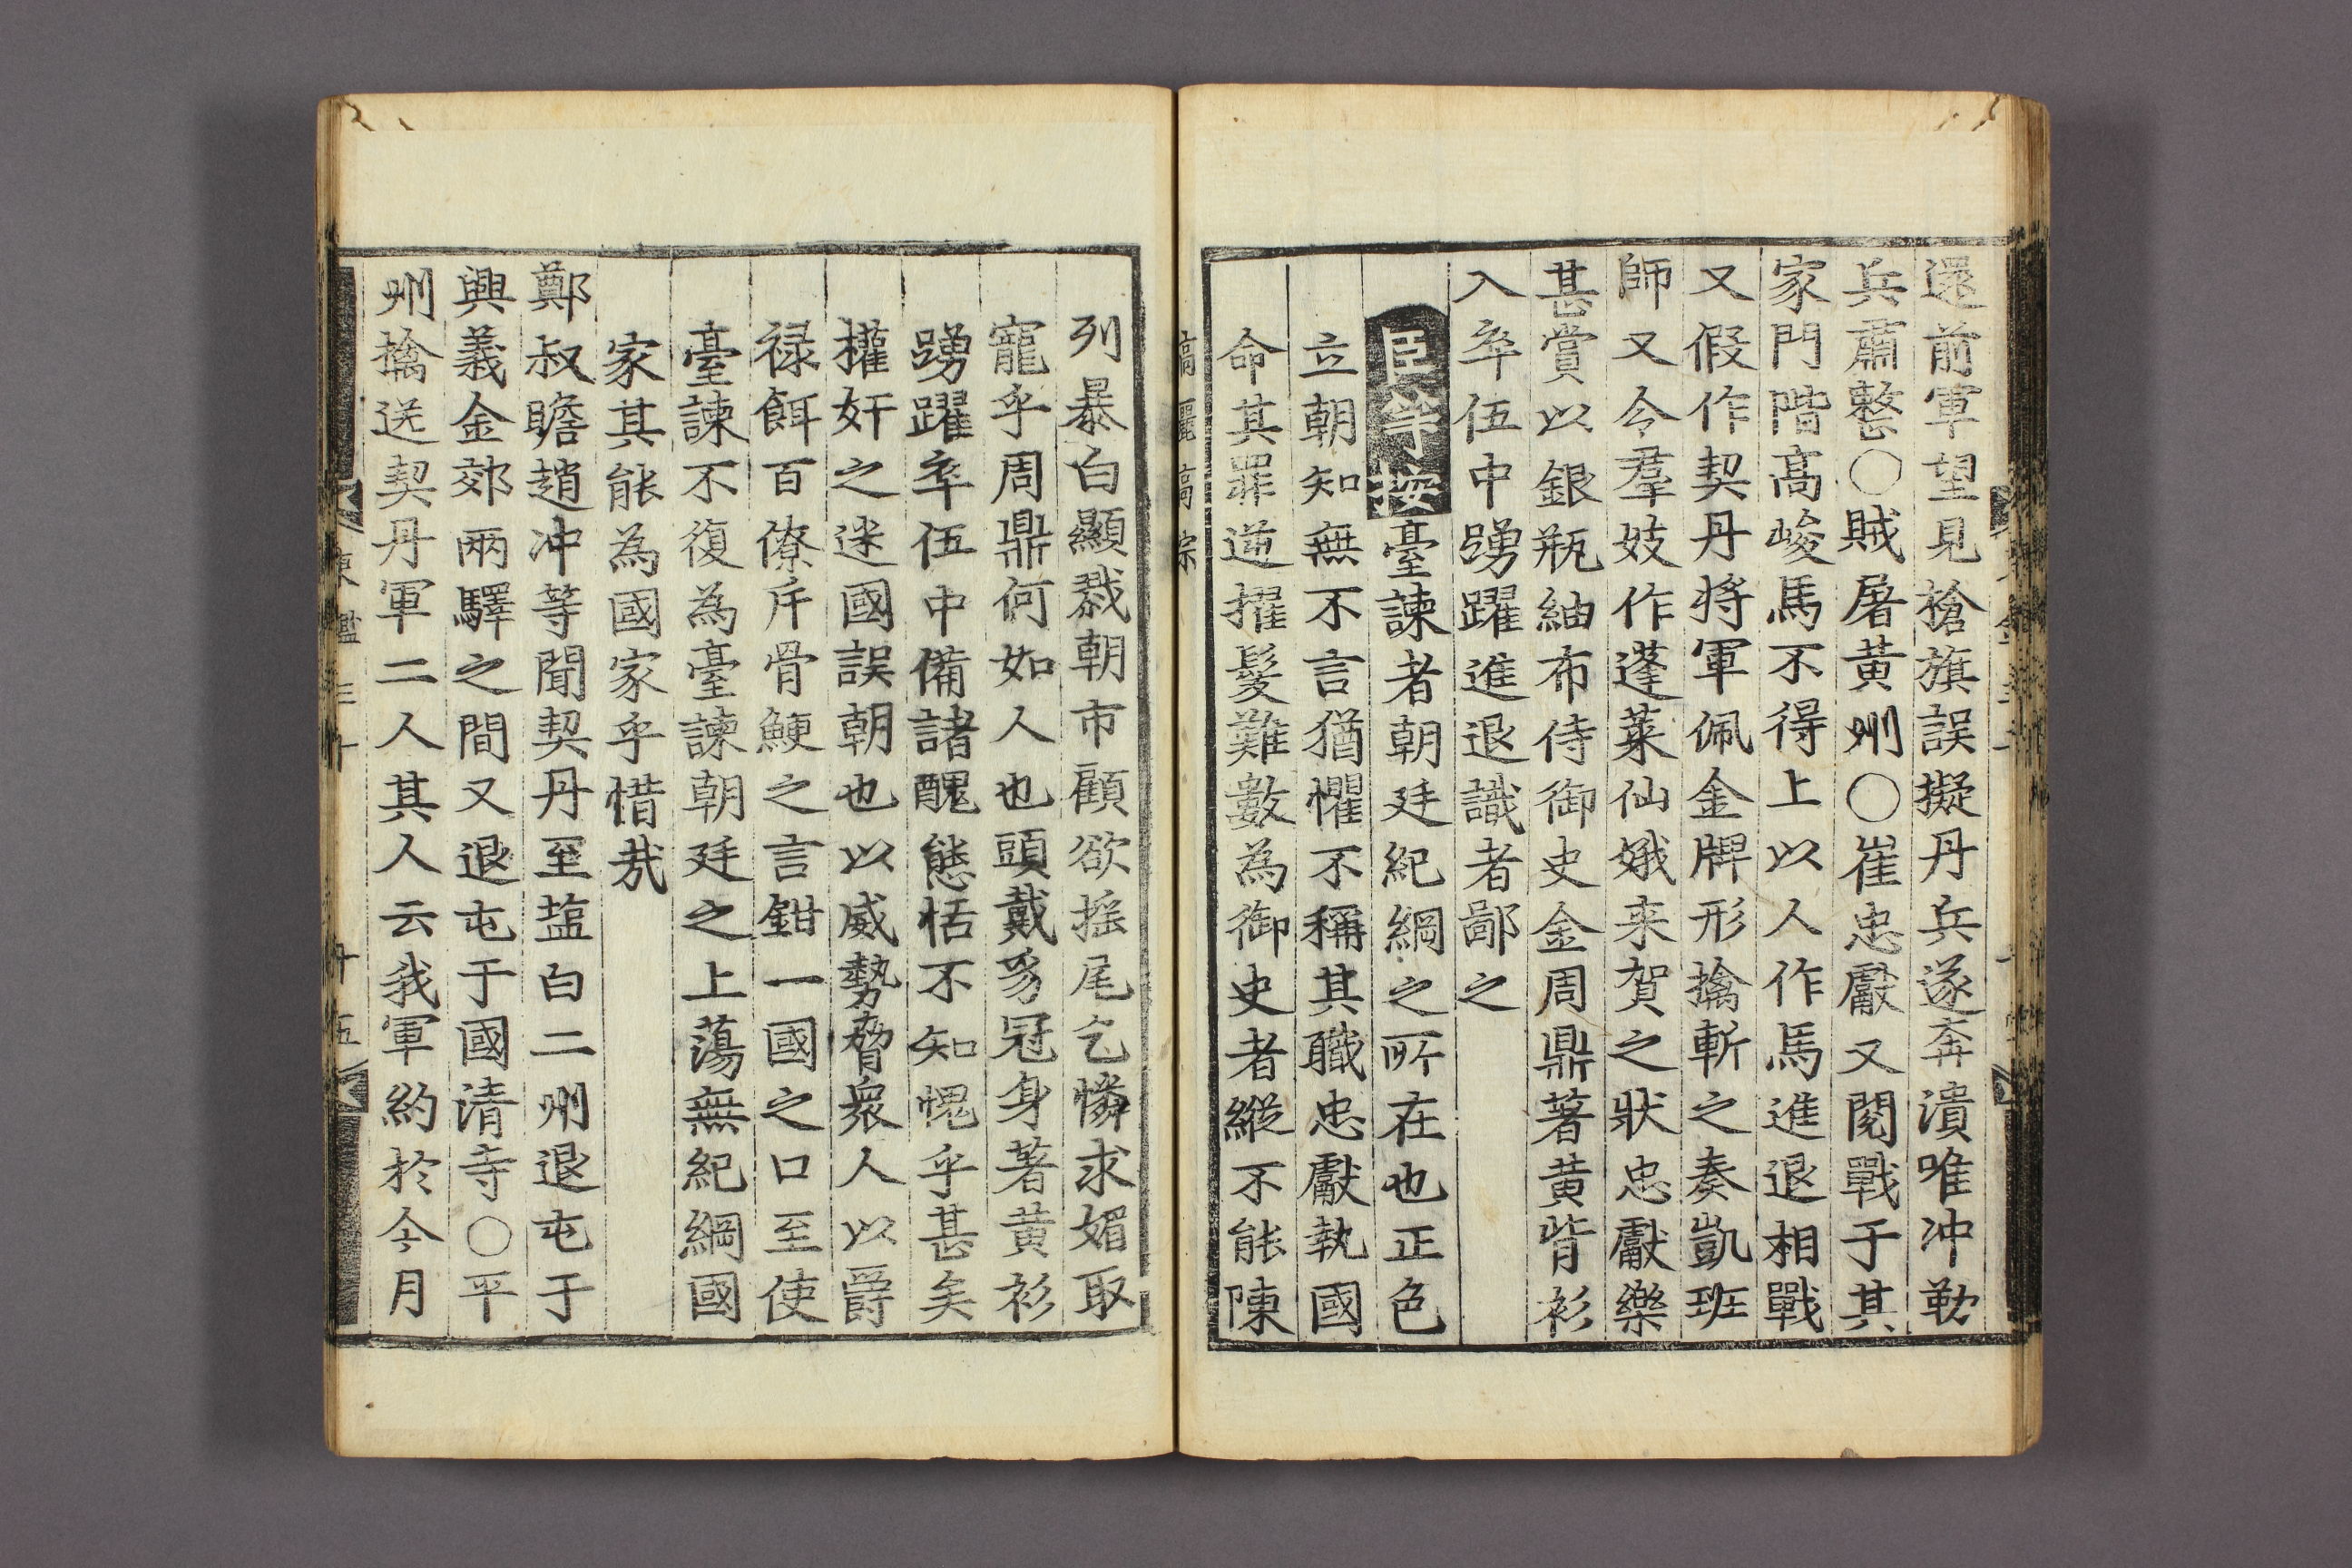 還前軍望見槍旗誤擬丹兵遂奔潰唯冲勒
兵肅整○賊屠黄州○崔忠獻又閱戰于其
家門階高峻馬不得上以人作馬進退相戰
又假作契丹將軍佩金牌形擒斬之奏凱班
師又令羣妓作蓬萊仙娥来賀之狀忠獻樂
甚賞以銀瓶紬布侍御史金周鼎著黄背衫
入卒伍中踴躍進退識者鄙之
臣等按臺諫者朝廷紀綱之所在也正色
立朝知無不言猶懼不稱其職忠獻執國
命其罪逆擢髮難數為御史者縱不能陳
高麗高宗
列暴白顯戮朝市顧欲揺尾乞憐求媚取
寵乎周鼎何如人也頭戴豸冠身著黄衫
踴躍卒伍中備諸醜態恬不知愧乎甚矣
權奸之迷國誤朝也以威勢脅衆人以爵
禄餌百僚斥骨鯁之言鉗一國之口至使
臺諫不復為臺諫朝廷之上蕩無紀綱國
家其能為國家乎惜㢤
鄭叔瞻趙冲等聞契丹至塩白二州退屯于
興義金郊兩驛之間又退屯于國清寺○平
州擒送契丹軍二人其人云我軍約於今月
東鑑三十 十五